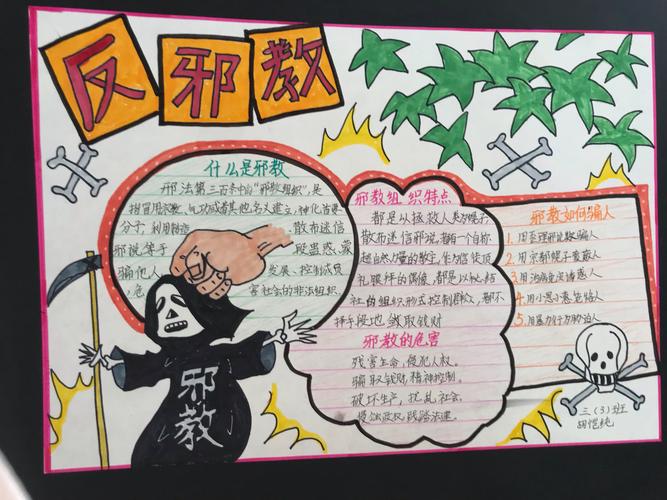 反邪教
什么是邪教
邢法第三百条中的“邪教组织”,是
指冒用宗教、气功或者其他名义建立,神化首要
分子 利用制造 散布迷信
邪说等手 段蛊惑、蒙
骗他人 发展、控制成员
危 害社会的非法组织
邪教组织特点
都是以拯救人类为幌子,
散布迷信邪说,都有一个自称
超自然力量的教主,作为信徒顶
礼膜拜的偶像,都是以秘密结
社的组织形式控制群众,都不
择手段地敛取钱财
邪教的危害
残害生命,侵犯人权。
骗取钱财,精神控制。
破坏生产,扰乱社会。
政权
邪教如何骗人
1.用歪理邪说欺骗人
2.用宗教幌子蒙蔽人
3.用治病免灾诱惑人
4.用小恩小惠笼络人
5.用暴力
邪教
三(3)班
田恺纯